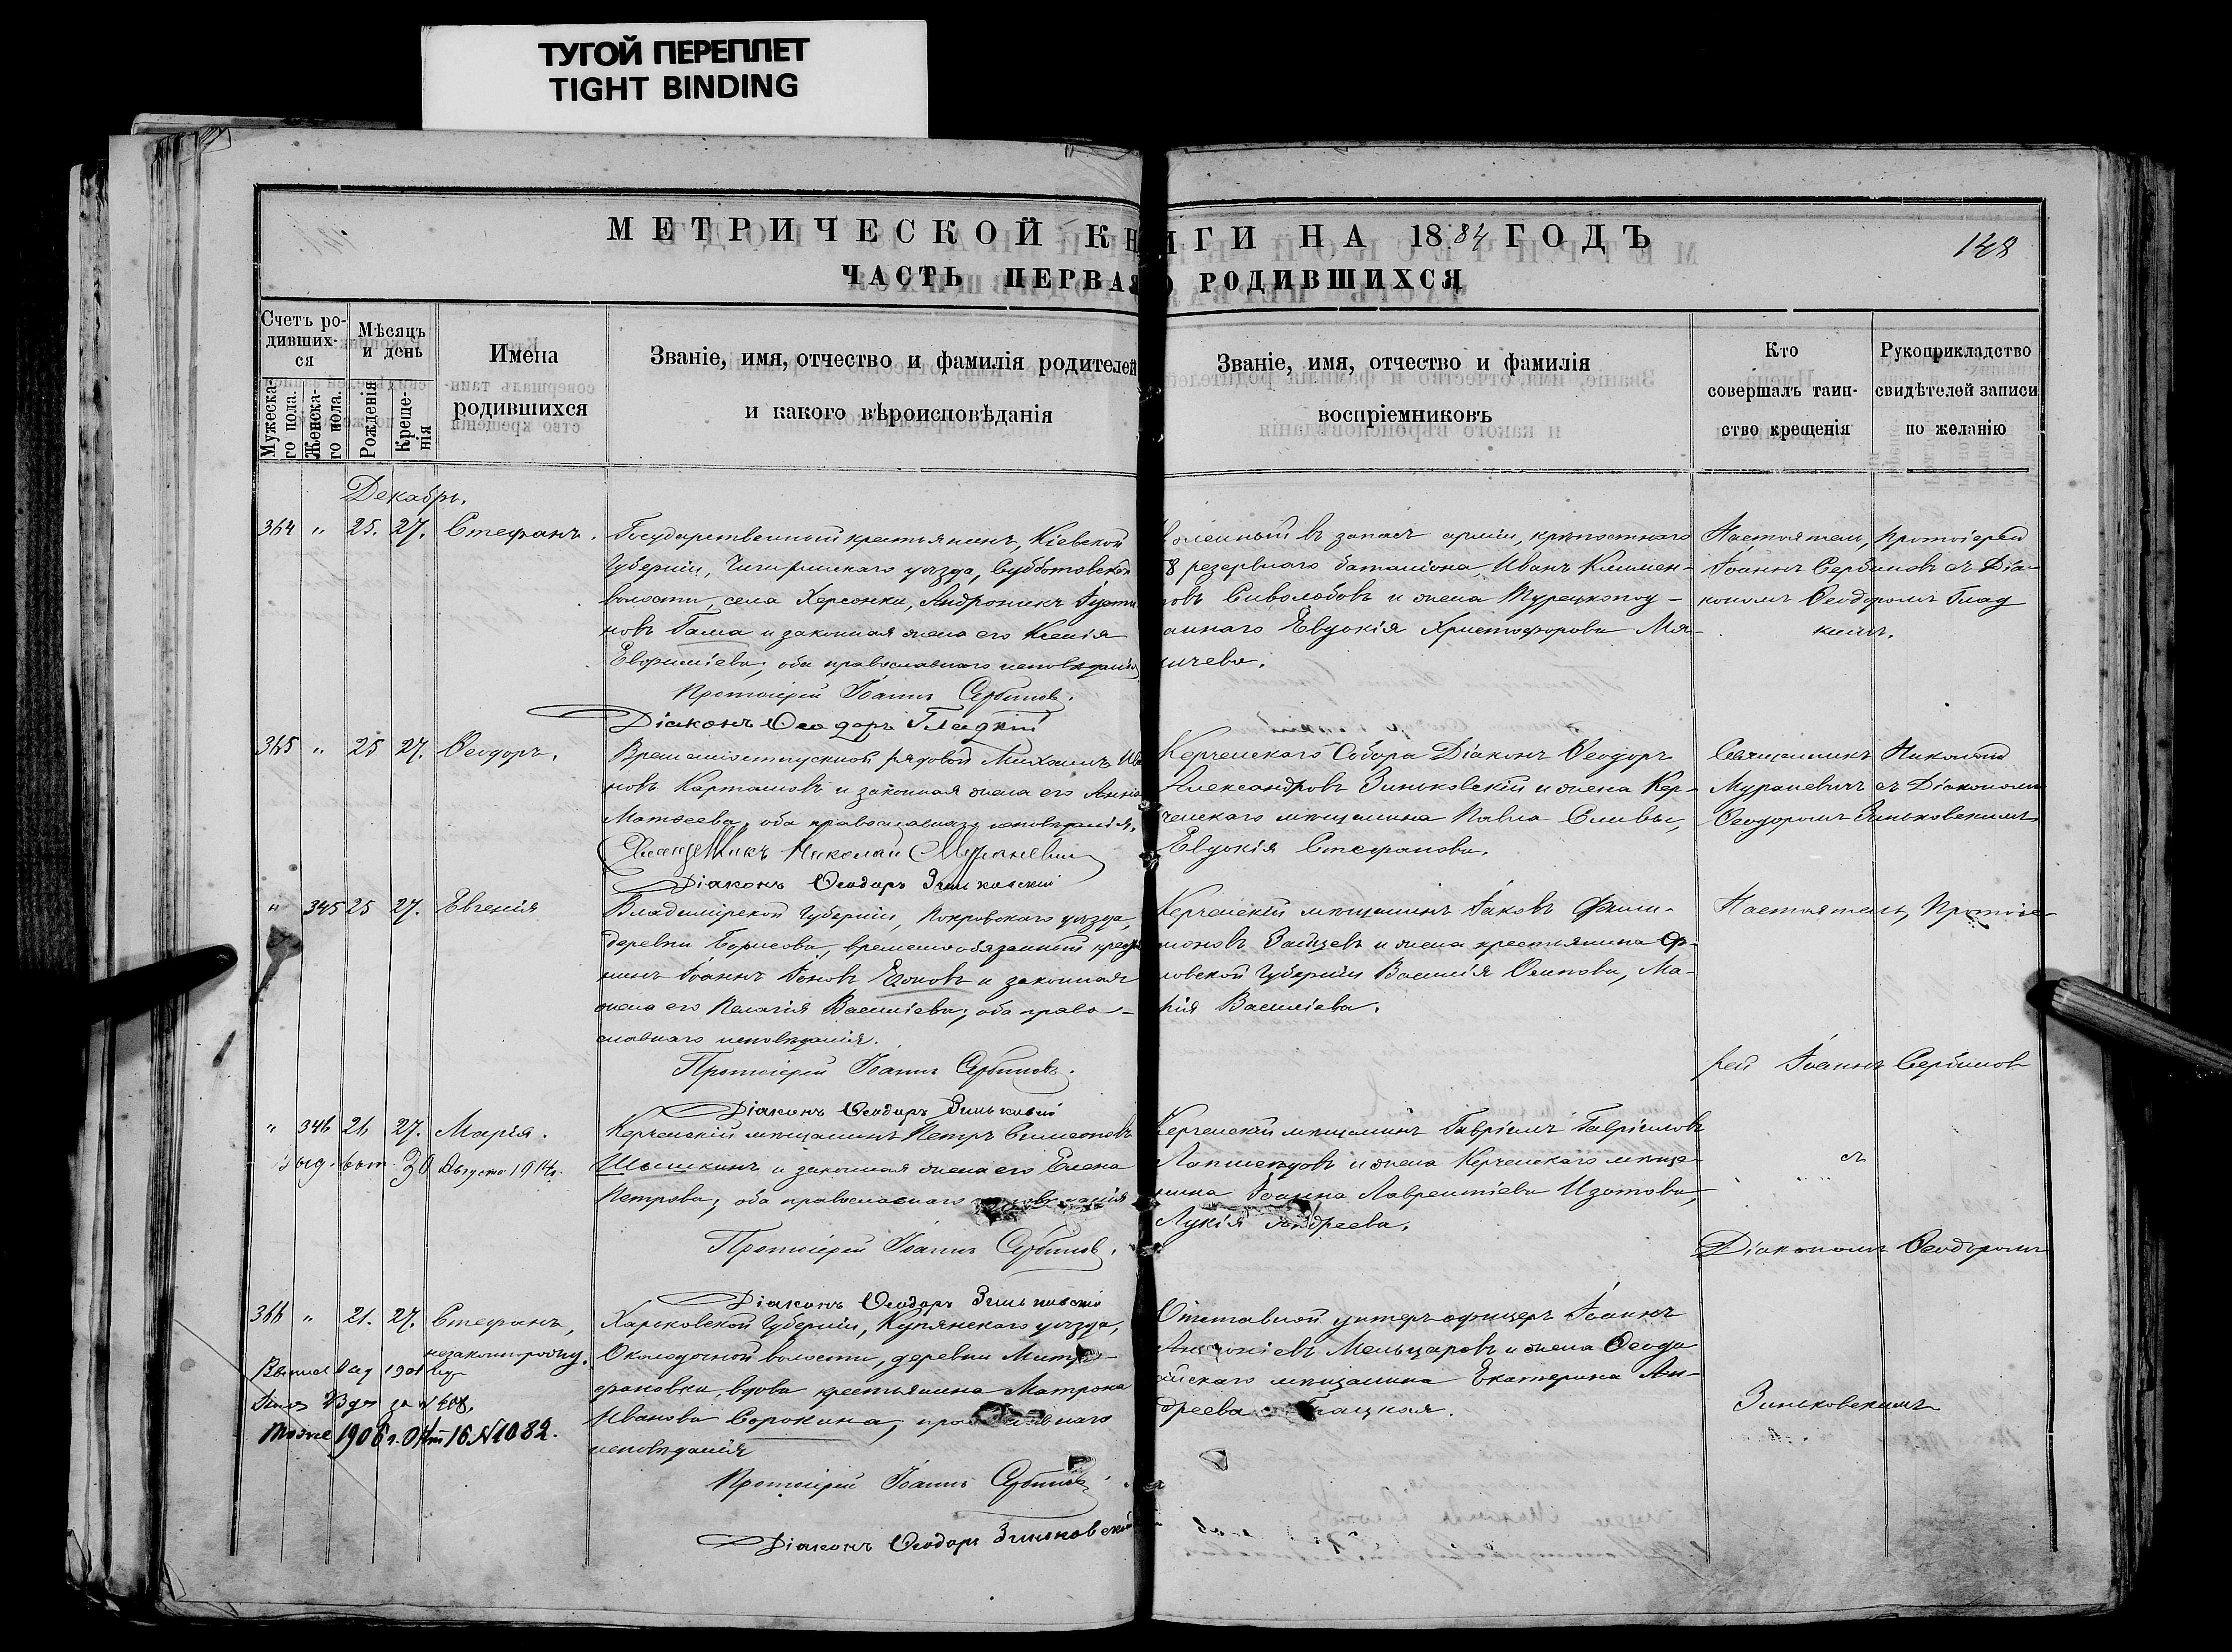 ТУГОЙ ПЕРЕПЛЕТ
TIGHT BINDING
МЕТРИЧЕСКОЙ КНИГИ НА 1884 ГОДЪ
148
ЧАСТЬ ПЕРВАЯ О РОДИВШИХСЯ
Счетъ родившихся
Мужескаго пола.
Женскаго пола.
Мѣсяцъ и день
Рожденія
Крещенія
Имена
родившихся
Званіе, имя, отчество и фамилія родителей
и какого вѣроисповѣданія
Званіе, имя, отчество и фамилія
воспріемниковъ
Кто
совершалъ таин-
ство крещенія
Рукоприкладство
свидѣтелей записи
по желанію
Декабрь.
364 " 25. 27. Стефанъ.
Государственный крестьянинъ, Кіевской
Губерніи, Чигиринскаго уѣзда, Субботовской
волости, села Херсонки, Андроникъ Густи
новъ Гама и законная жена его Ксенія
Евфиміева; оба православнаго исповѣданія
Протоіерей Іоаннъ Сербиновъ.
Діаконъ Ѳеодоръ Гладкій
воленный въ запасъ арміи, крѣпостнаго
8 резервнаго баталіона, Иванъ Климен-
товъ Сиволобовъ и жена Турецкопод-
аннаго Евдокія Христофорова Ма-
ичева.
Настоятель, Протоіерей
Іоаннъ Сербиновъ съ Діа-
кономъ Ѳеодоромъ Глад
кимъ.
365 " 25 27. Ѳеодоръ.
Временноотпускной рядовой Михаилъ Ива
новъ Карташовъ и законная жена его Анна
Матѳеева; оба православнаго исповѣданія.
Священникъ Николай Мураневичъ
Діаконъ Ѳеодоръ Зиньковскій
Керченскаго Собора Діаконъ Ѳеодоръ
Александровъ Зиньковскій и жена Кер-
ченскаго мѣщанина Павла Сливы,
Евдокія Стефанова.
Священникъ Николай
Мураневичъ съ Діакономъ
Ѳеодоромъ Зиньковскимъ
" 345 25 27. Евгенія
Владимірской Губерніи, Покровскаго уѣзда,
деревни Борисова, временнообязанный кресть
нинъ Іоаннъ Іоновъ Еоновъ и законная
жена его Пелагія Василіева; оба право-
славнаго исповѣданія.
Протоіерей Іоаннъ Сербиновъ.
Діаконъ Ѳеодоръ Зиньковскій
Керченскій мѣщанинъ Іаковъ Фили-
моновъ Зайцевъ и жена крестьянина Ор-
ловской Губерніи Василія Осипова, Ма-
рія Василіева.
Настоятель, Протоіе-
рей Іоаннъ Сербиновъ
" 346 26 27. Марія.
Выд. 30 Августа 1914 г.
Керченскій мѣщанинъ Петръ Симеоновъ
Шышкинъ и законная жена его Елена
Петрова; оба православнаго исповѣданія
Протоіерей Іоаннъ Сербиновъ.
Діаконъ Ѳеодоръ Зиньковскій
Керченскій мѣщанинъ Гавріилъ Гавріиловъ
Лапшенцовъ и жена Керченскаго мѣща-
нина Іоанна Лаврентіева Изотова,
Лукія Андреева.
съ
Діакономъ Ѳеодоромъ
366 " 21. 27. Стефанъ,
незаконнорожд.
Тоже 1908 г. 16 N 1082.
Харьковской Губерніи, Купянскаго уѣзда,
волости, деревни Митро-
фановки, вдова крестьянина Матрона
Иванова Сорокина, православнаго
исповѣданія
Протоіерей Іоаннъ Сербиновъ
Діаконъ Ѳеодоръ Зиньковскій
Отставной унтеръ-офицеръ Іоаннъ
Антоніевъ Мельцаровъ и жена Ѳеодо
сійскаго мѣщанина Екатерина Ан-
дреева
Зиньковскимъ